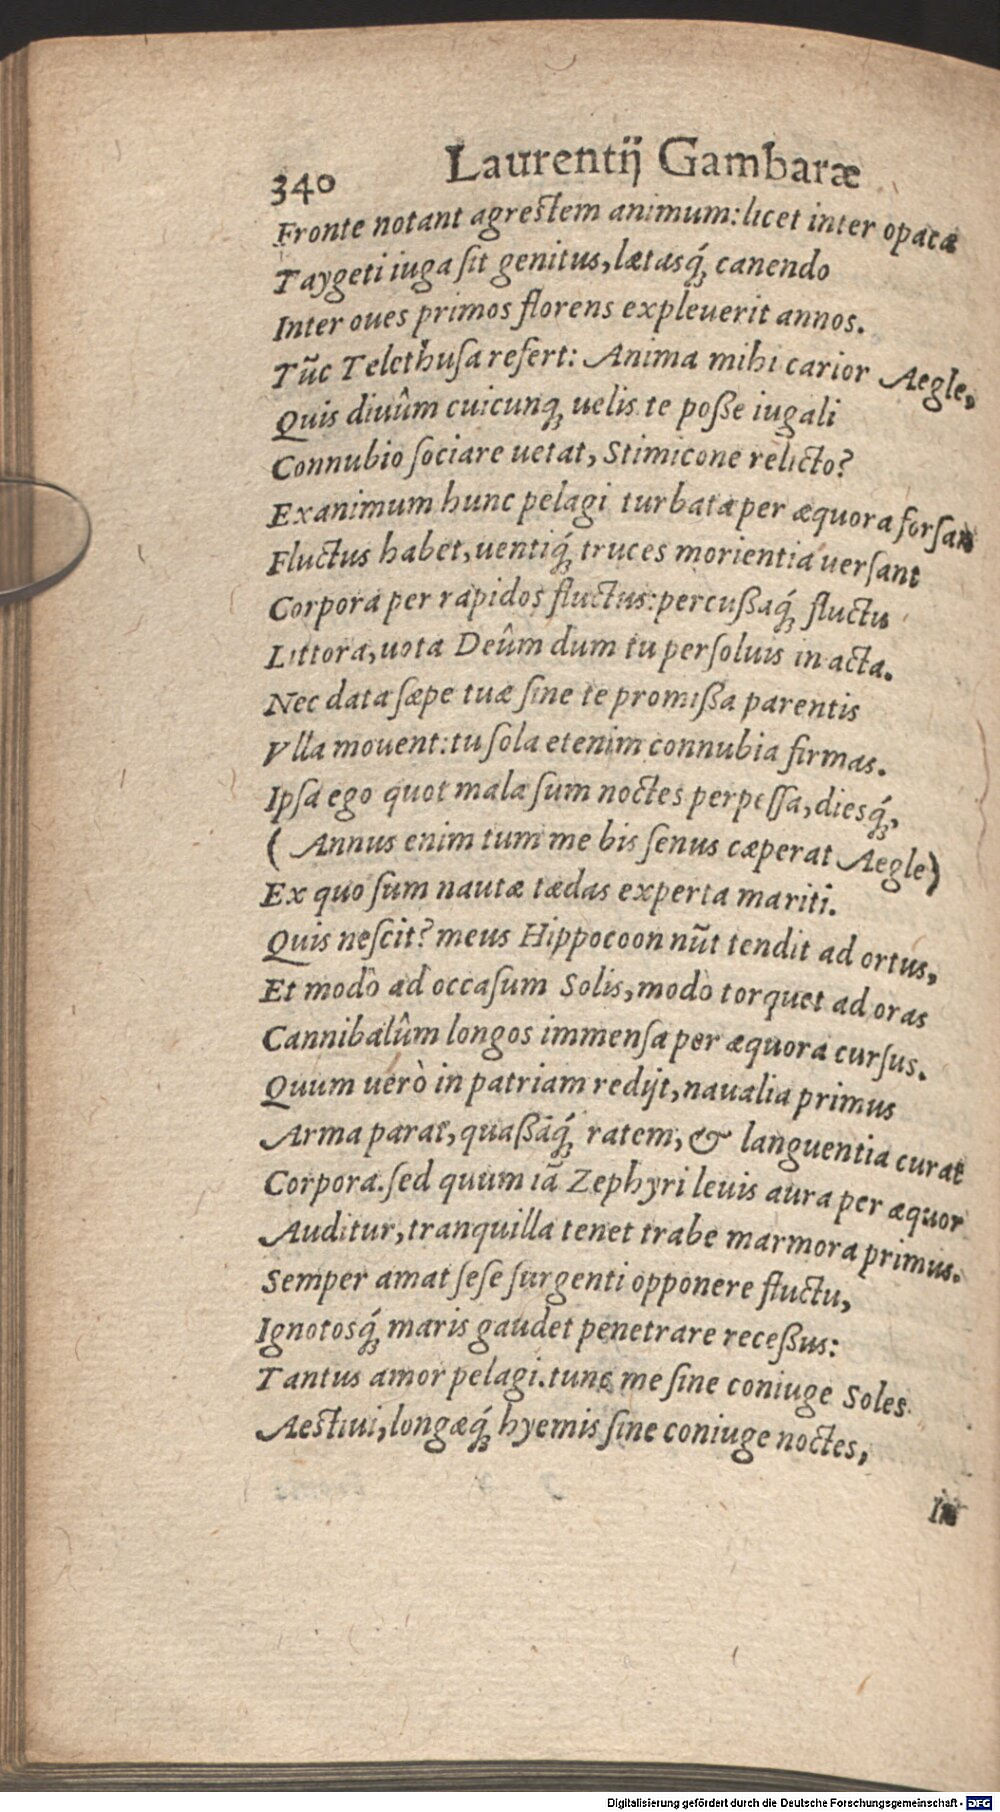 340 Laurentij Gambaræ
Fronte notant agrestem animum: licet inter opaca
Taygeti iuga ſit genitus, lætasq́; canendo
Inter oues primos florens expleuerit annos.
Tūc Telethuſa refert: Anima mihi carior Aegle,
Quis diuûm cuicunq; uelis te poße iugali
Connubio ſociare uetat, Stimicone relicto?
Exanimum hunc pelagi turbata per æquora forſan
Fluctus habet, uentiq́; truces morientia uerſant
Corpora per rapidos fluctus: percußaq́; fluctu
Littora, uota Deûm dum tu perſoluis in acta.
Nec data ſæpe tuæ ſine te promißa parentis
Vlla mouent: tu ſola etenim connubia firmas.
Ipſa ego quot mala ſum noctes perpeſſa, diesq́;,
( Annus enim tum me bis ſenus cæperat Aegle)
Ex quo ſum nautæ tædas experta mariti.
Quis neſcit? meus Hippocoon nūt tendit ad ortus,
Et modò ad occaſum Solis, modò torquet ad oras
Cannibalûm longos immenſa per æquora curſus.
Quum uerò in patriam redijt, naualia primus
Arma parat, quaßāq́; ratem, & languentia curat
Corpora. ſed quum iā Zephyri leuis aura per æquor
Auditur, tranquilla tenet trabe marmora primus.
Semper amat ſeſe ſurgenti opponere fluctu,
Ignotosq́; maris gaudet penetrare receßus:
Tantus amor pelagi. tunc me ſine coniuge Soles
Aestiui, longæq́; hyemis ſine coniuge noctes,
Digitalisierung gefördert durch die Deutsche Forschungsgemeinschaft - DFG